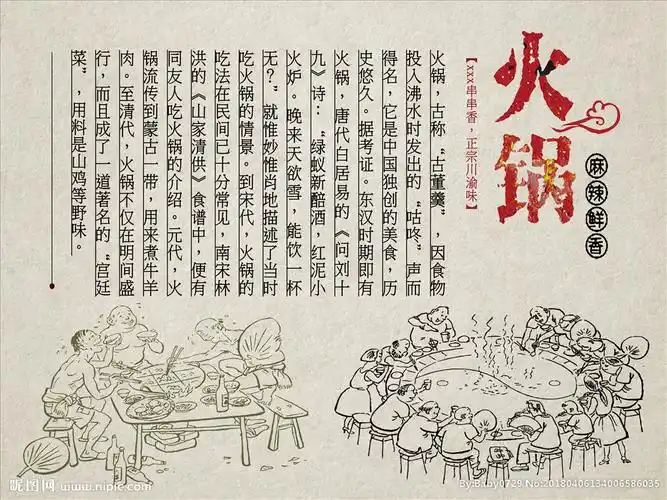 火锅
麻辣鲜香
【xxx串串香，正宗川渝味】
火锅，古称“古董羹”，因食物
投入沸水时发出的“咕咚”声而
得名，它是中国独创的美食，历
史悠久。据考证。东汉时期即有
火锅，唐代白居易的《问刘十
九》诗：“绿蚁新醅酒，红泥小
火炉。晚来天欲雪，能饮一杯
无？”就惟妙惟肖地描述了当时
吃火锅的情景。到宋代，火锅的
吃法在民间已十分常见，南宋林
洪的《山家清供》食谱中，便有
同友人吃火锅的介绍。元代，火
锅流传到蒙古一带，用来煮牛羊
肉。至清代，火锅不仅在明间盛
行，而且成了一道著名的“宫廷
菜”，用料是山鸡等野味。
昵图网 www.nipic.com
By:Baby0729 No:20180406134006586035